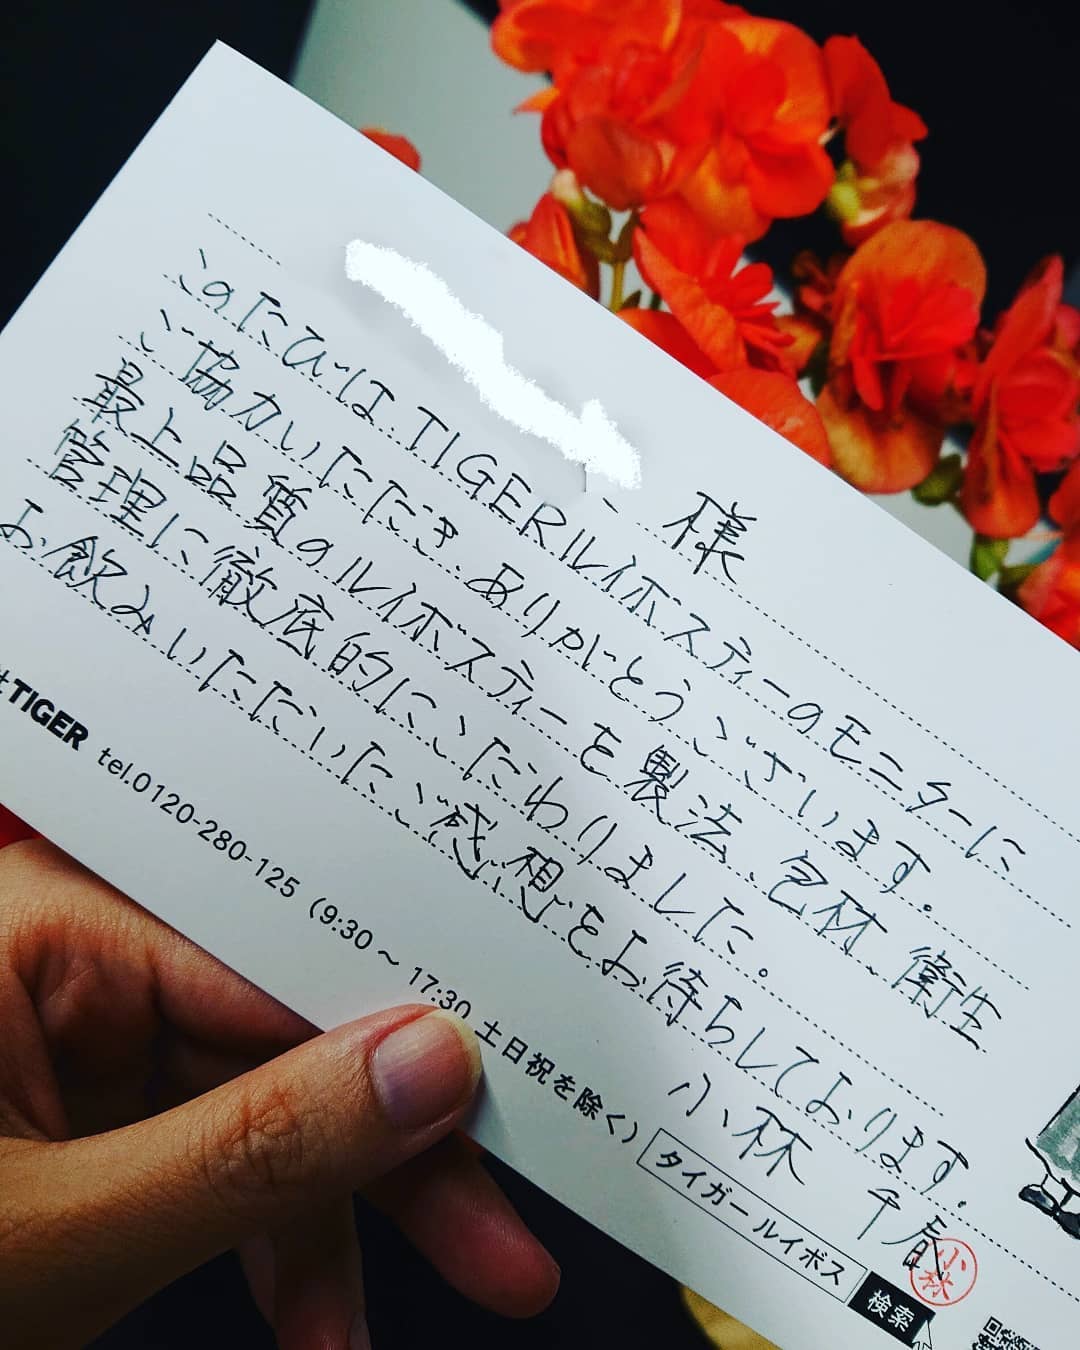 様
このたびは、TIGERルイボスティーのモニターに
ご協力いただき、ありがとうございます。
最上品質のルイボスティーを製法、包材、衛生
管理に徹底的にこだわりました。
お飲みいただいたご感想をお待ちしております。
小林 千春
小林
TIGER tel.0120-280-125 (9:30～17:30 土日祝を除く) タイガールイボス 検索